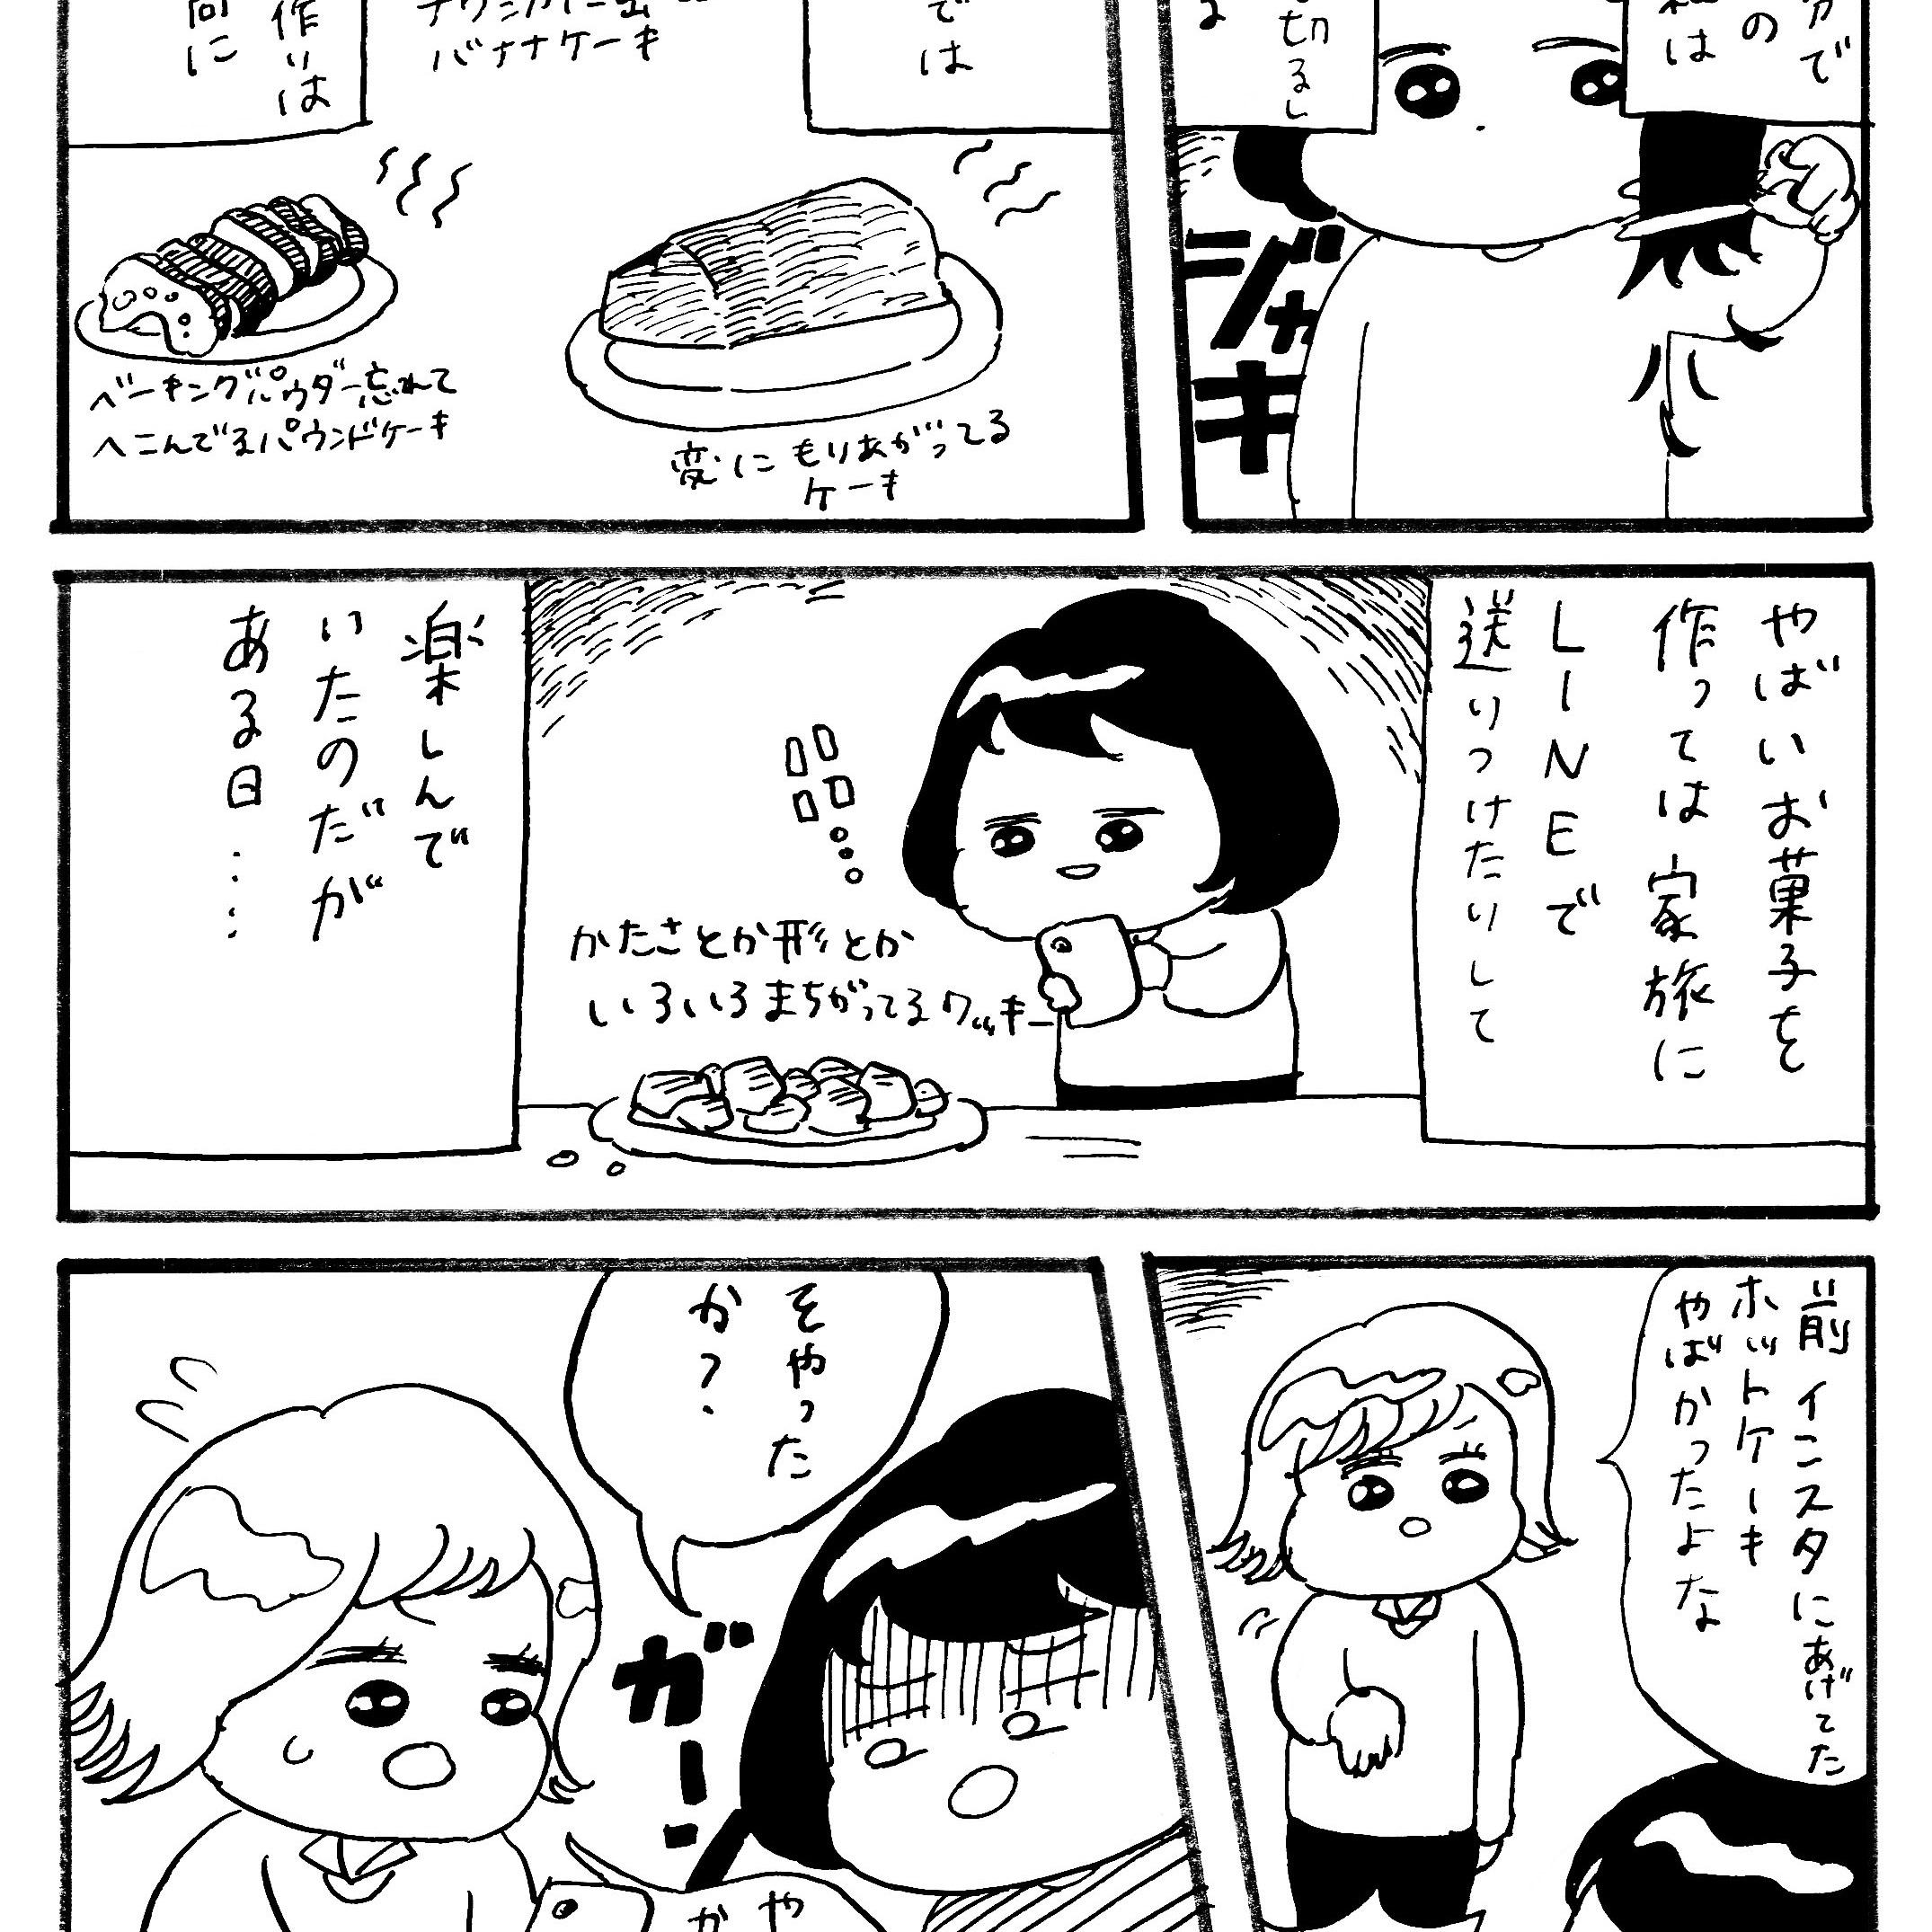 分で
の
は
切るし
ジャキ
では
ナウシカに出
バナナケーキ
作りは
向に
変にもりあがってる
ケーキ
ベーキングパウダー忘れて
へこんでるパウンドケーキ
やばいお菓子を
作っては家族に
LINEで
送りつけたりして
かたさとか形とか
いろいろまちがってるクッキー
楽しんで
いたのだが
ある日……
前インスタにあげてた
ホットケーキ
やばかったよな
そやった
か?
ガーン
や
か